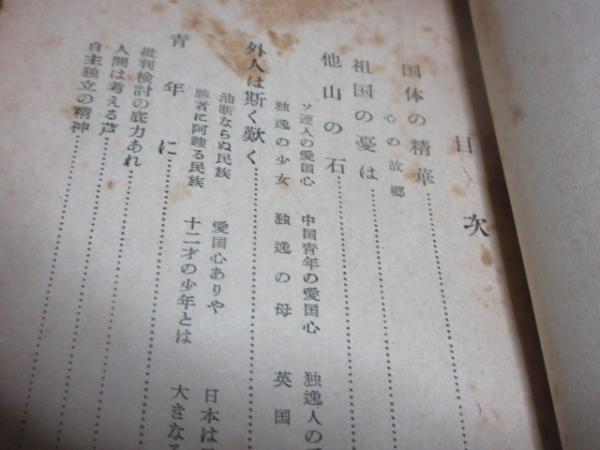 目次
国体の精華
心の故郷
祖国の憂は
他山の石
ソ連人の愛国心 中国青年の愛国心 独逸人の
独逸の少女 独逸の母 英国
外人は斯く歎く
油断ならぬ民族 愛国心ありや 日本は
勝者に阿諛る民族 十二才の少年とは 大きなる
青年に
批判検討の底力あれ
人間は考える芦
自主独立の精神